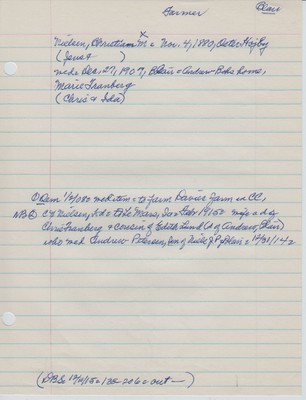 Farmer Blair
Nielsen, Christian M = Nov. 4, 1880, Oster Højby
(Jens +      )
md = Dec. 27, 1907, Blair = Andrew Bohs home,
Marie Tranberg
(Chris & Ida)
① Dem 1/2/08 = md item = to farm Davies farm in CC,
NB② C M Nielsen, 3d = to Le Mars, Ia = Feb 1915 = wife a d of
Chris Tranberg & cousin of Edith Lund (d of Andrew, Blair)
who md Andrew Petersen, son of Niels J P, Blair = 12/31/14 =
(DB = 12/11/15 = 135-206 = out —)